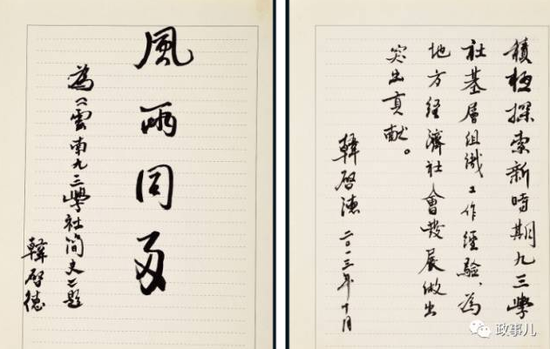 風雨同舟
為《雲南九三學社简史》題
韓啓德
積極探索新時期九三學
社基層组織工作經驗、為
地方经濟社會發展做出
突出貢献。
韓啓德 二〇一三年十月
政事儿